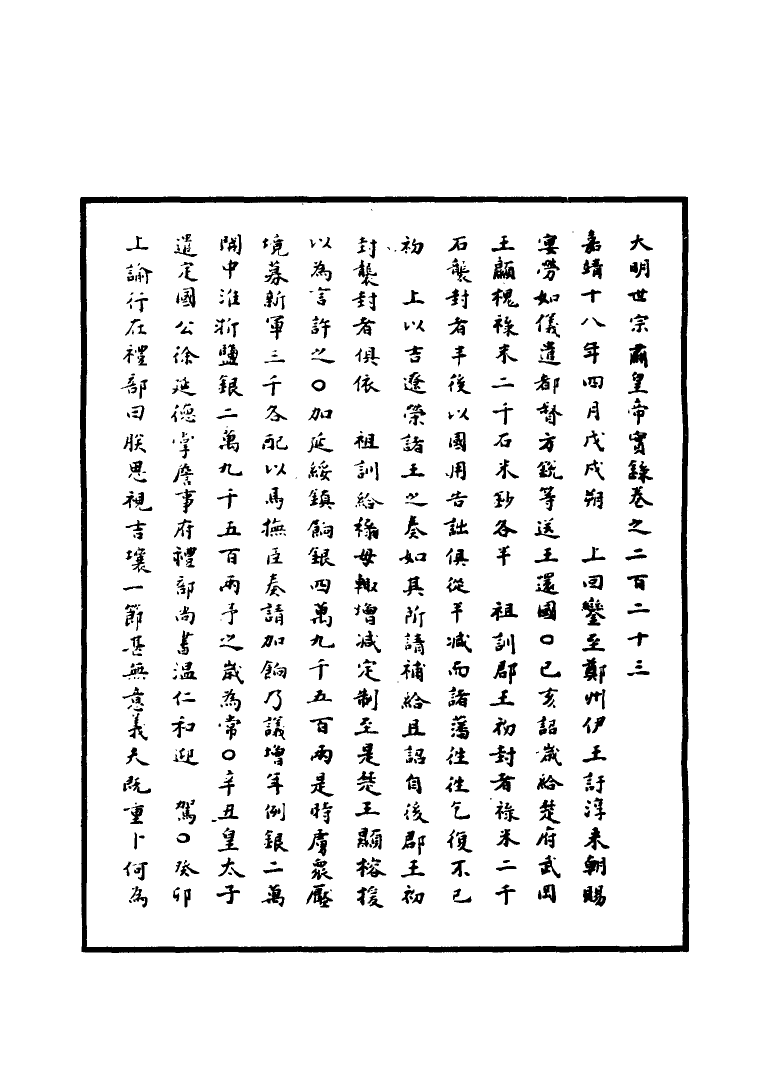 大明世宗肅皇帝實錄卷之二百二十三
嘉靖十八年四月戊戌朔　上回鑾至鄭州伊王訏淳来朝賜
宴勞如儀遣都督方銳等送王還國〇己亥詔歲給楚府武岡
王顯槐祿米二千石米鈔各半　祖訓郡王初封者祿米二千
石襲封者半後以國用告詘俱從半減而諸藩往往乞復不已
初　上以吉遼榮諸王之奏如其所請補給且詔自後郡王初
封襲封者俱依　祖訓給祿毋輙增減定制至是楚王顯榕援
以為言許之〇加延綏鎮餉銀四萬九千五百兩是時虜眾壓
境募新軍三千各配以馬撫臣奏請加餉乃議增年例銀二萬
開中淮浙鹽銀二萬九千五百兩予之歲為常〇辛丑皇太子
遣定國公徐延德掌詹事府禮部尚書溫仁和迎　駕〇癸卯
上諭行在禮部曰朕思視吉壤一節甚無意義夫既重卜何為